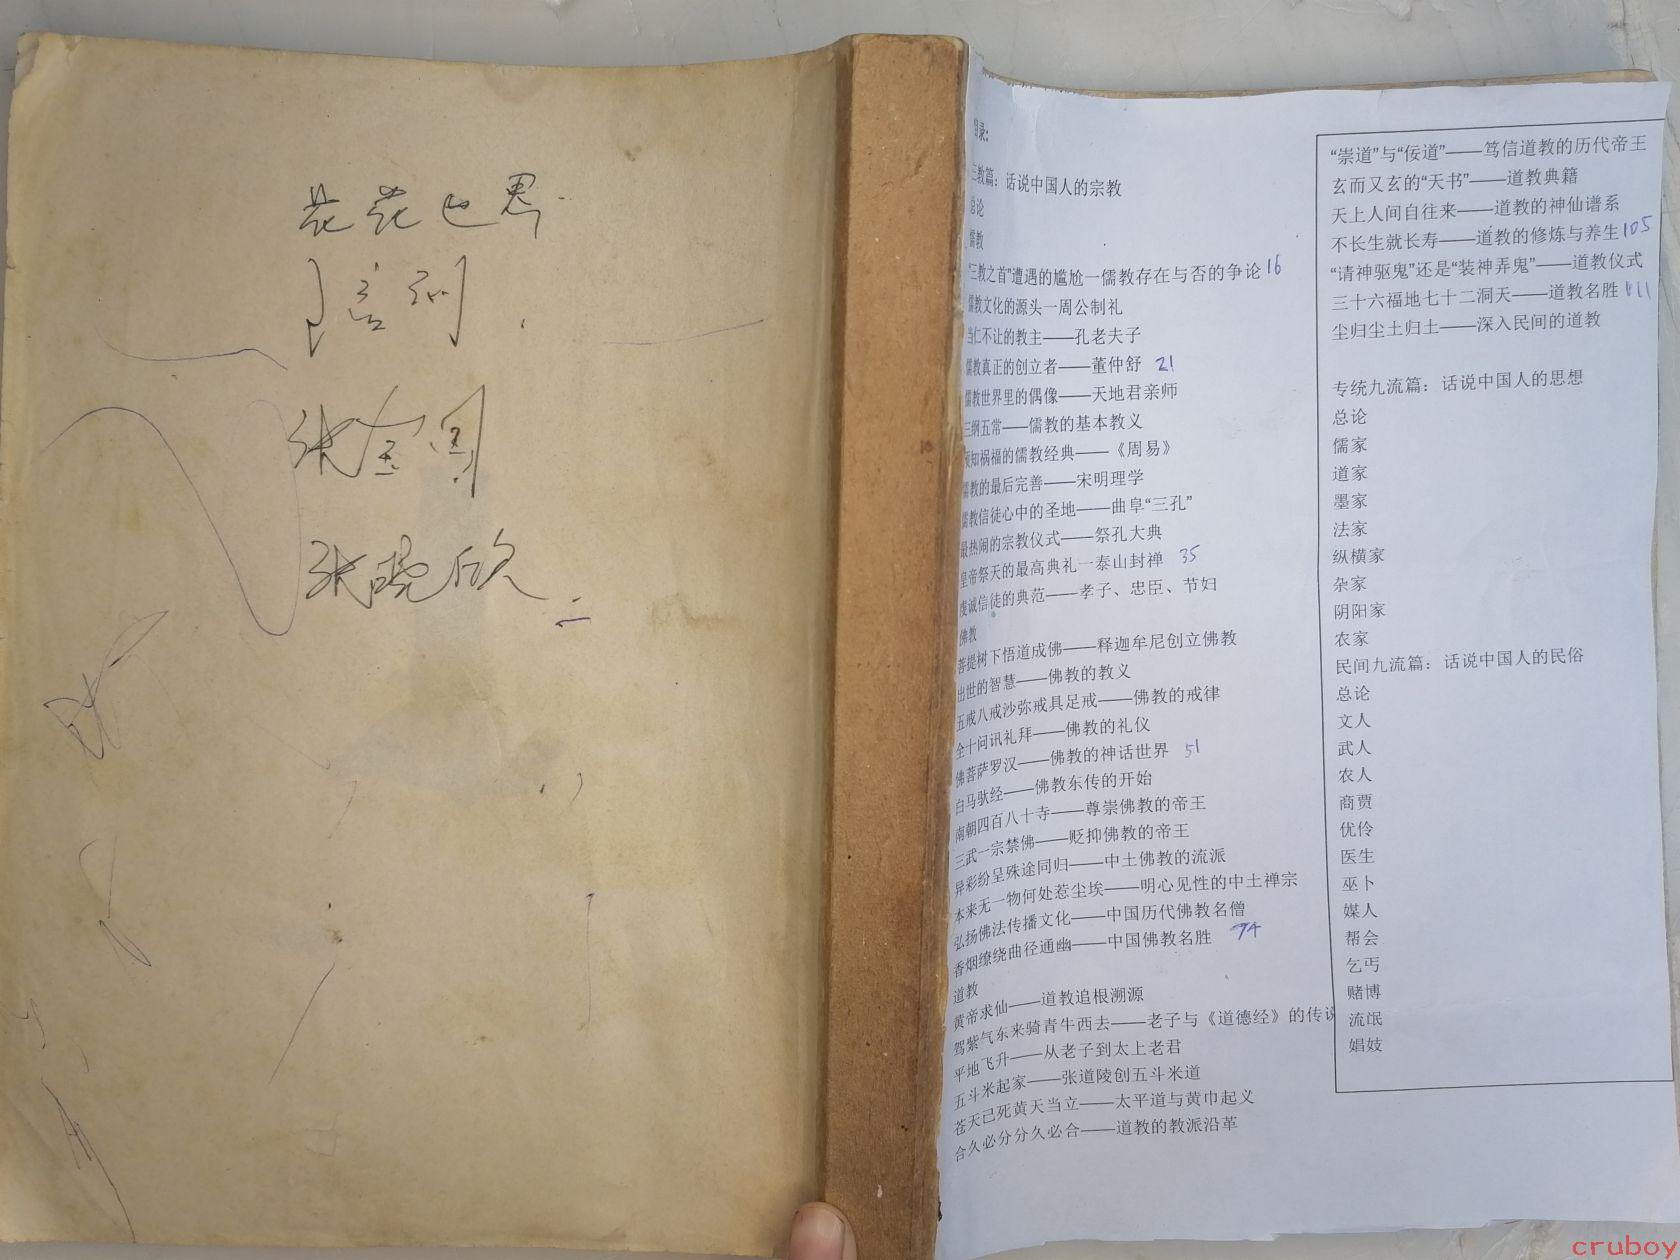 花花世界
培训
张金国
张晓欣
目录：
三教篇：话说中国人的宗教
总论
儒教
“三教之首”遭遇的尴尬一儒教存在与否的争论 16
儒教文化的源头一周公制礼
当仁不让的教主——孔老夫子
儒教真正的创立者——董仲舒 21
儒教世界里的偶像——天地君亲师
三纲五常——儒教的基本教义
预知祸福的儒教经典——《周易》
儒教的最后完善——宋明理学
儒教信徒心中的圣地——曲阜“三孔”
最热闹的宗教仪式——祭孔大典
皇帝祭天的最高典礼一泰山封禅 35
虔诚信徒的典范——孝子、忠臣、节妇
佛教
菩提树下悟道成佛——释迦牟尼创立佛教
出世的智慧——佛教的教义
五戒八戒沙弥戒具足戒——佛教的戒律
全十问讯礼拜——佛教的礼仪
佛菩萨罗汉——佛教的神话世界 51
白马驮经——佛教东传的开始
南朝四百八十寺——尊崇佛教的帝王
三武一宗禁佛——贬抑佛教的帝王
异彩纷呈殊途同归——中土佛教的流派
本来无一物何处惹尘埃——明心见性的中土禅宗
弘扬佛法传播文化——中国历代佛教名僧
香烟缭绕曲径通幽——中国佛教名胜 74
道教
黄帝求仙——道教追根溯源
驾紫气东来骑青牛西去——老子与《道德经》的传说
平地飞升——从老子到太上老君
五斗米起家——张道陵创五斗米道
苍天已死黄天当立——太平道与黄巾起义
合久必分分久必合——道教的教派沿革
“崇道”与“佞道”——笃信道教的历代帝王
玄而又玄的“天书”——道教典籍
天上人间自往来——道教的神仙谱系
不长生就长寿——道教的修炼与养生 105
“请神驱鬼”还是“装神弄鬼”——道教仪式
三十六福地七十二洞天——道教名胜 111
尘归尘土归土——深入民间的道教
专统九流篇：话说中国人的思想
总论
儒家
道家
墨家
法家
纵横家
杂家
阴阳家
农家
民间九流篇：话说中国人的民俗
总论
文人
武人
农人
商贾
优伶
医生
巫卜
媒人
帮会
乞丐
赌博
流氓
娼妓
cruboy